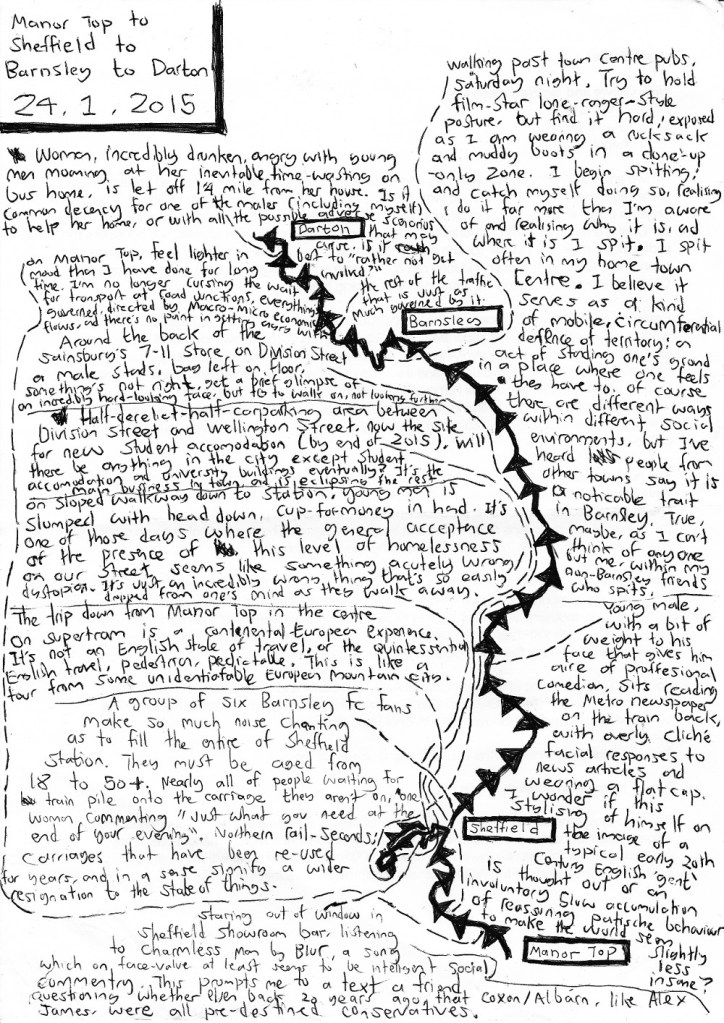 Manor Top to
Sheffield to
Barnsley to Darton
24.1.2015
walking past town centre pubs,
Saturday night. Try to hold
film-star lone-ranger-style
posture, but find it hard, exposed
as I am wearing a rucksack
and muddy boots in a done-up
-only zone. I begin spitting;
and catch myself doing so, realising
I do it far more than I'm aware
of and realising why it is, and
where it is I spit. I spit
often in my home town
Centre. I believe it
serves as a kind
of mobile, circumferential
deffence of territory; an
act of standing one's ground
in a place where one feels
they have to. of course
there are different ways
within different social
environments, but I've
heard people from
other towns say it is
a noticable trait
in Barnsley. True,
maybe, as I can't
think of anyone
but me, within my
non-Barnsley friends
who spits.
Woman, incredibly drunken, angry with young
men moaning at her inevitable time-wasting on
bus home, is let off 1/4 mile from her house. Is it
common decency for one of the males (including myself)
to help her home, or with all the possible adverse scenarios
that may
arise, is it
best to "rather not get
involved"
Darton
on Manor Top, feel lighter in
mood than I have done for long
time. I'm no longer cursing the wait
for transport at road junctions, everything's
governed, directed by Macro-micro economic
flows, and there's no point in getting angry with
the rest of the traffic
that is just as
much governed by it.
Barnsley
Around the back of the
Sainsbury's 7-11 store on Division Street
a male stands, bag left on floor,
something's not right, get a brief glimpse of
an incredibly hard-looking face, but to walk on, not looking further
Half-derelict-half-carparking area between
Division Street and Wellington Street, now the site
for new student accomodation (by end of 2015), will
there be anything in the city except student
accomodation and University buildings eventually? It's the
main business in town and is eclipsing the rest
on sloped walkway down to station, young man is
slumped with head down, cup-for-money in hand. It's
one of those days where the general acceptance
of the presence of this level of homelessness
on our street seems like something acutely wrong/
dystopian. It's just an incredibly wrong thing that's so easily
dropped from one's mind as they walk away.
The trip down from Manor Top in the centre
on supertram is a continental European experience.
It's not an English style of travel, or the quintessential
English travel, pedestrian, predictable. This is like a
tour from some unidentifable European mountain city.
A group of six Barnsley FC fans
make so much noise chanting
as to fill the entire of Sheffield
Station. They must be aged from
18 to 50+. Nearly all of people waiting for
train pile onto the carriage they aren't on, one
woman commenting "Just what you need at the
end of your evening". Northern rail-seconds;
carriages that have been re-used
for years, and in a sense signify a wider
resignation to the state of things.
Young male,
with a bit of
weight to his
face that gives him
aire of proffesional
comedian, sits reading
the Metro newspaper
on the train back,
with overly cliché
facial responses to
news articles and
wearing a flat cap.
I wonder if this
stylising of himself on
the image of a
typical early 20th
Century English 'gent'
is thought out or an
involuntary slow accumulation
of reassuring pastiche behaviour
to make the world seem
slightly
less
insane?
Sheffield
Manor Top
staring out of window in
Sheffield showroom bar, listening
to Charmless Man by Blur, a song
which on face-value at least seems to be intelligent social
commentry. This prompts me to a text a friend
questioning whether even back 20 years ago, that Coxon/Albarn, like Alex
James, were all pre-destined conservatives.